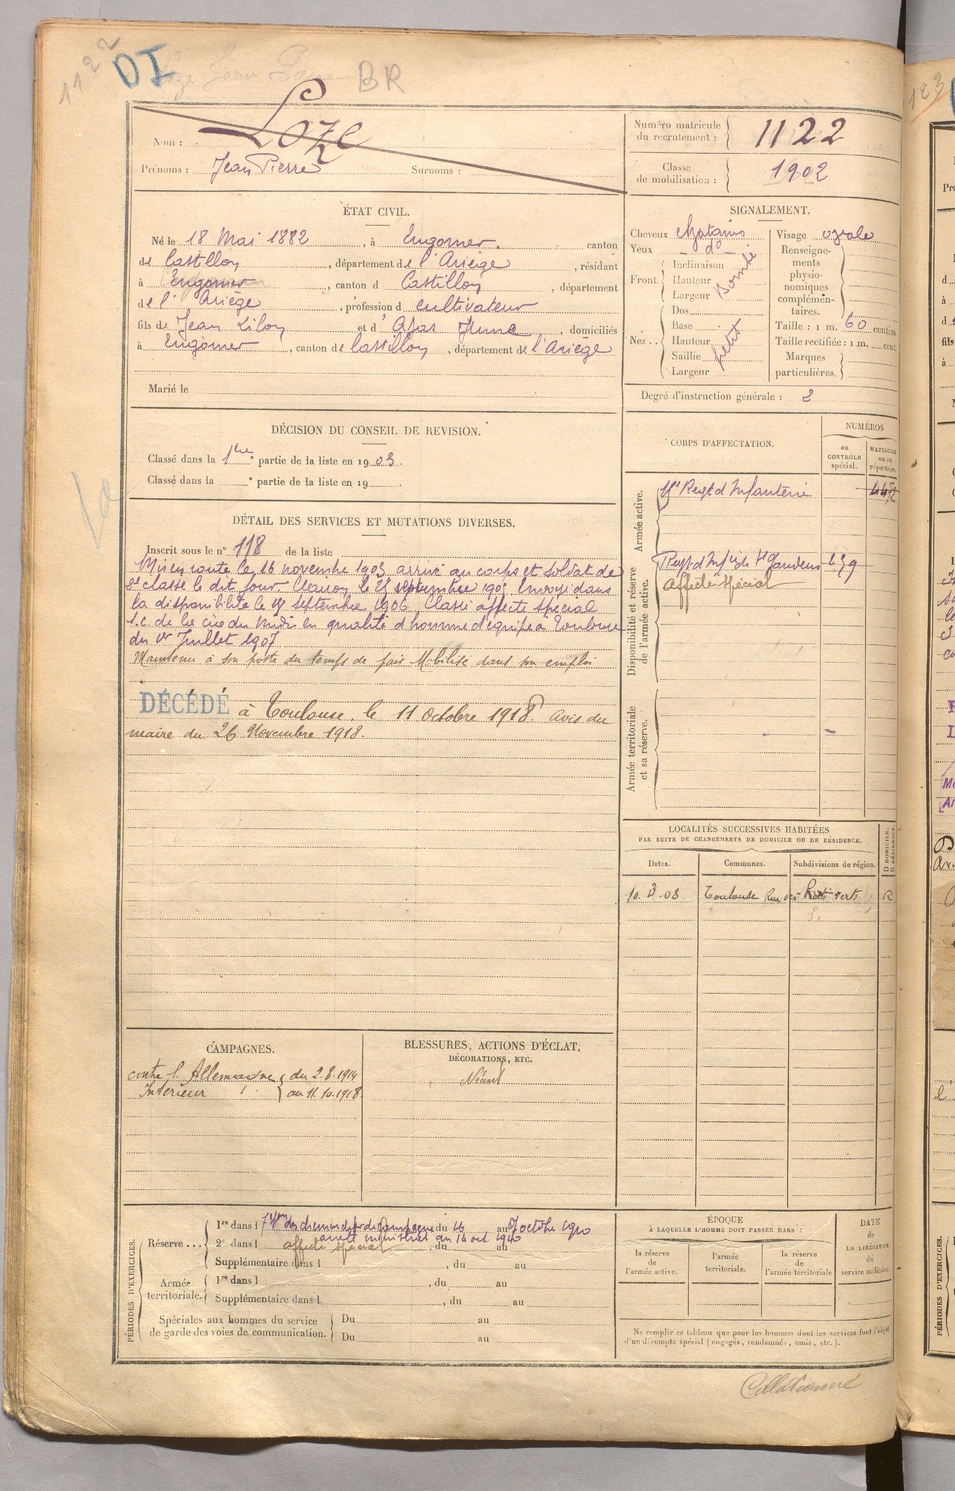 1122 DI BR
Nom : Loze
Prénoms : Jean Pierre Surnoms :
Numéro matricule du recrutement : 1122
Classe de mobilisation : 1902
ÉTAT CIVIL.
Né le 18 Mai 1882, à Engomer, canton
de Castillon, département de l'Ariège, résidant
à Engomer, canton d Castillon, département
de l'Ariège, profession d cultivateur
fils de Jean Lilou et d' Afas Jeanne, domiciliés
à Engomer, canton de Castillon, département de l'Ariège
Marié le
SIGNALEMENT.
Cheveux chatains Visage ovale
Yeux - do - Renseignements physionomiques complémentaires.
Front Inclinaison
Hauteur
Largeur bombé
Nez Dos
Base
Hauteur
Saillie
Largeur petit
Taille : 1 m. 60 centim
Taille rectifiée : 1 m. cent
Marques particulières.
Degré d'instruction générale : 2
DÉCISION DU CONSEIL DE REVISION.
Classé dans la 1ère partie de la liste en 1903.
Classé dans la ° partie de la liste en 19
CORPS D'AFFECTATION.
NUMÉROS
au CONTRÔLE spécial.
MATRICULE ou au répertoire.
Armée active.
Regt d'Infanterie
Disponibilité et réserve de l'armée active.
Regt d'Infie de St Gaudens
affecté spécial
Armée territoriale et sa réserve.
DÉTAIL DES SERVICES ET MUTATIONS DIVERSES.
Inscrit sous le n° 118 de la liste
Mis en route le 16 novembre 1903 arrivé au corps et soldat de
2e classe le dit jour. Clairon le 28 septembre 1905 Envoyé dans
la disponibilité le 18 septembre 1906. Classé affecté spécial
s.c. de la cie du Midi en qualité d'homme d'équipe à Toulouse
du 1er Juillet 1907
Maintenu à son poste du temps de paix Mobilisé dans son emploi
DÉCÉDÉ à Toulouse, le 11 octobre 1918. Avis du
maire du 26 Novembre 1918.
LOCALITÉS SUCCESSIVES HABITÉES
PAR SUITE DE CHANGEMENTS DE DOMICILE OU DE RÉSIDENCE.
Dates. Communes. Subdivisions de région. D DOMICILE. R RÉSIDENCE.
10.3.08 Toulouse R
CAMPAGNES.
contre l'Allemagne du 2.8.1914
Intérieur au 11.10.1918
BLESSURES, ACTIONS D'ÉCLAT,
DÉCORATIONS, ETC.
Néant
PÉRIODES D'EXERCICES.
Réserve
1re dans l du 16 au octobre 1910
arrêté ministériel du 14 oct 1910
2e dans l affecté spécial, du au
Supplémentaire dans l , du au
Armée territoriale.
1re dans l , du au
Supplémentaire dans l , du au
Spéciales aux hommes du service de garde des voies de communication.
Du au
Du au
ÉPOQUE
À LAQUELLE L'HOMME DOIT PASSER DANS :
la réserve de l'armée active.
l'armée territoriale.
la réserve de l'armée territoriale
DATE de LA LIBÉRATION du service militaire.
Ne remplir ce tableau que pour les hommes dont les services font l'objet
d'un décompte spécial (engagés, condamnés, omis, etc.).
Collationné